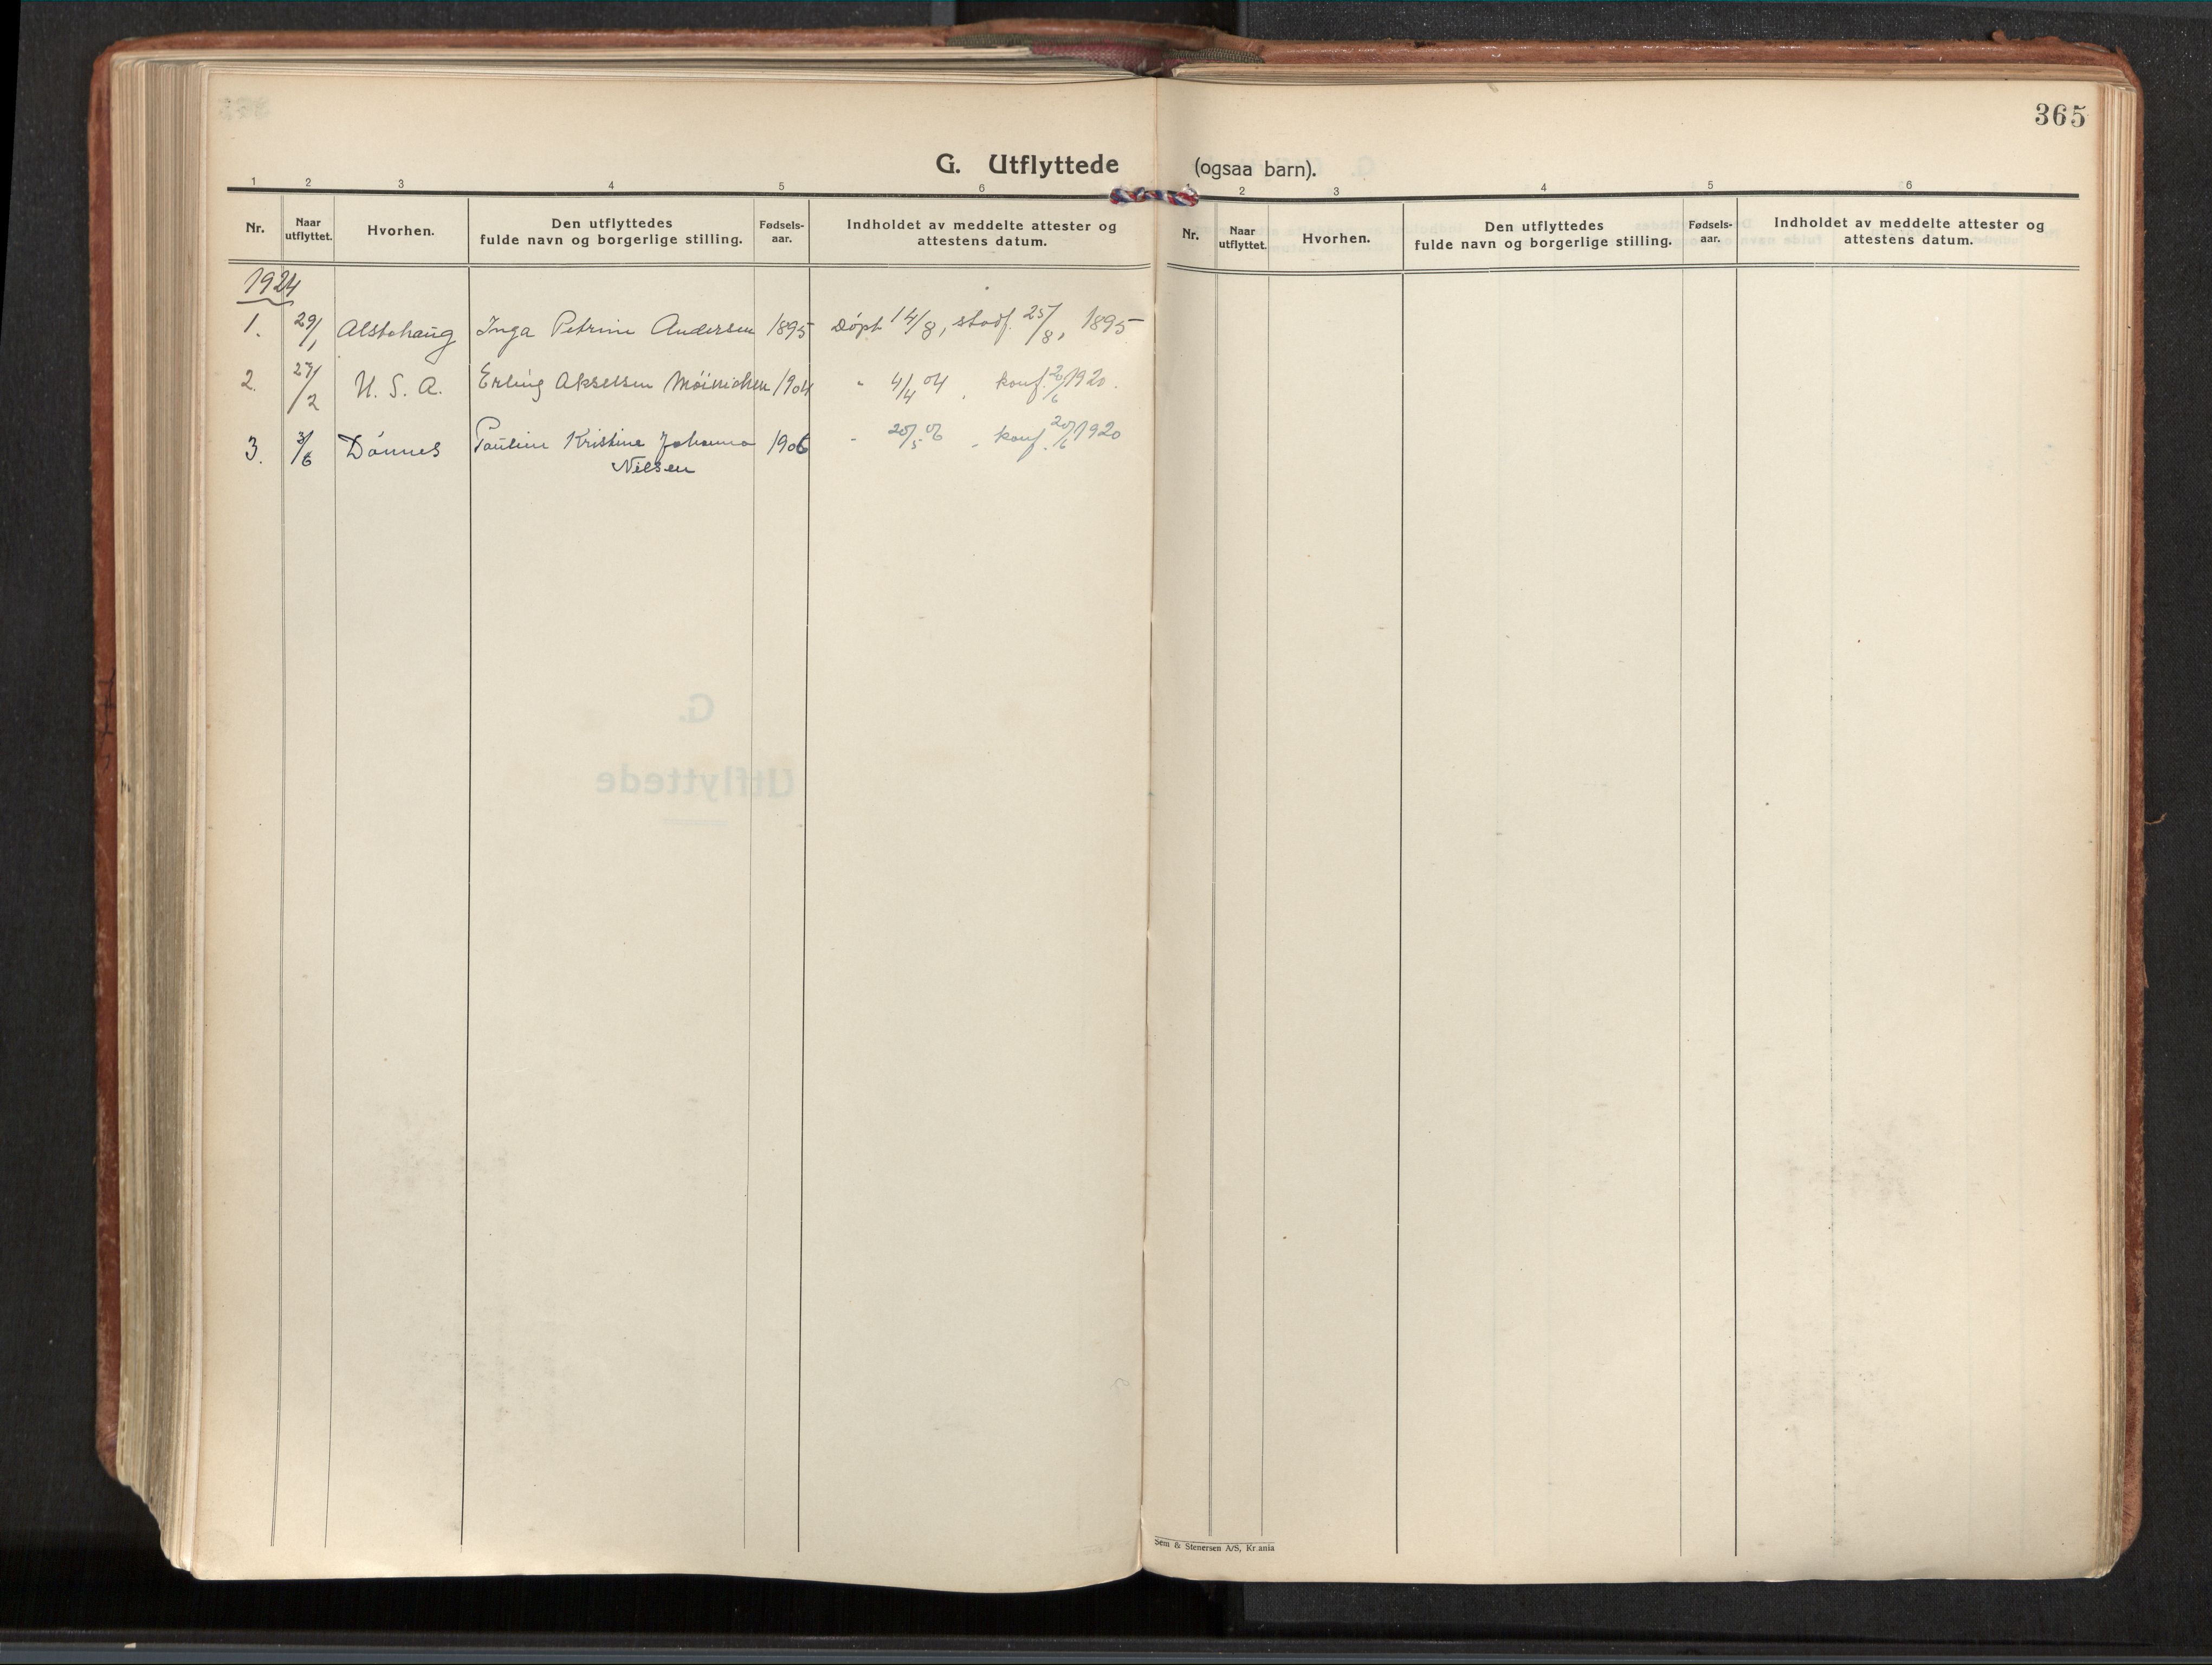 365
G. Utflyttede (ogsaa barn).
1 2 3 4 5 6
Nr. Naar utflyttet. Hvorhen. Den utflyttedes fulde navn og borgerlige stilling. Fødsels-aar. Indholdet av meddelte attester og attestens datum.
1924
1. 29/1 Alstahaug Inga Petrine Andersen 1895 Døpt 14/8, stadf. 25/8, 1895
2. 27/2 U. S. A. Erling Akselsen Möinichen 1904 " 4/4 04, konf. 20/6 1920.
3. 3/6 Dønnes Pauline Kristine Johanna 1906 " 20/5 06, konf. 20/6 1920
Nielsen
2 3 4 5 6
Nr. Naar utflyttet. Hvorhen. Den utflyttedes fulde navn og borgerlige stilling. Fødsels-aar. Indholdet av meddelte attester og attestens datum.
Sem & Stenersen A/S, Kr.ania